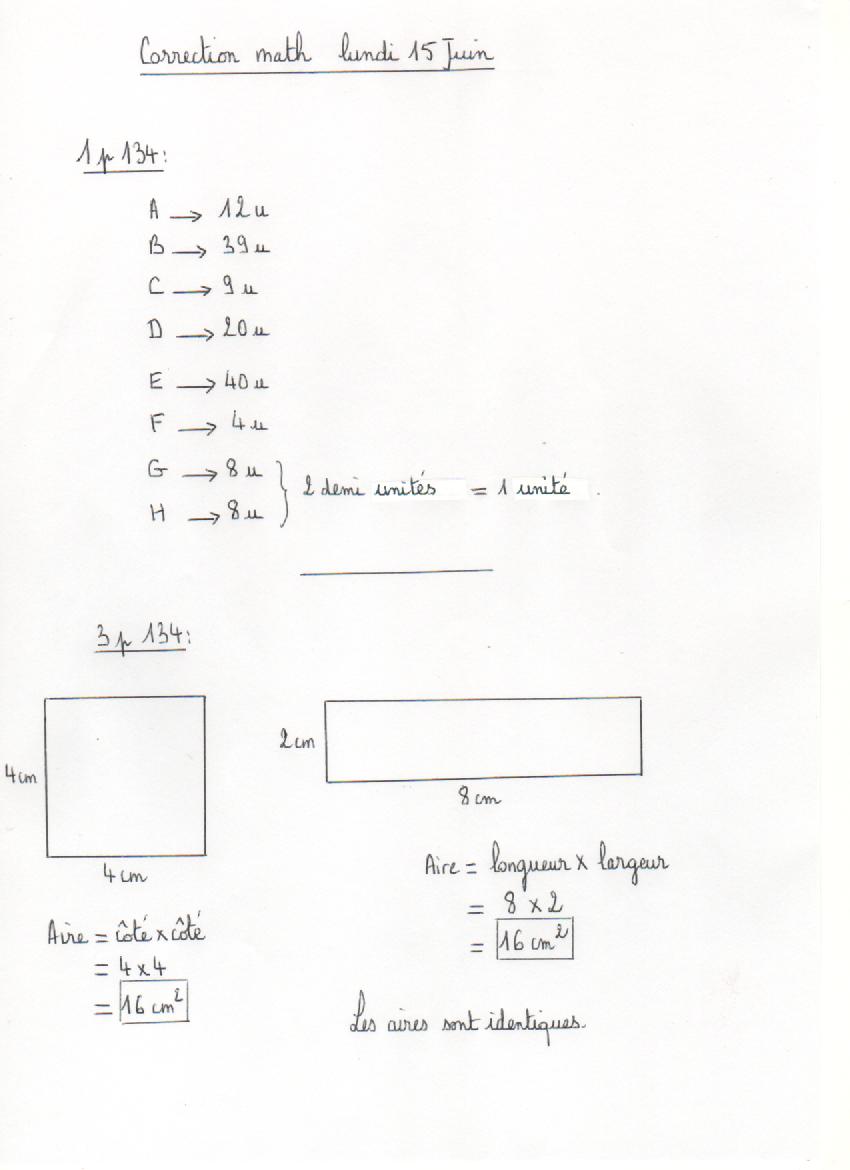 Correction math lundi 15 Juin
1 p 134:
A → 12 u
B → 39 u
C → 9 u
D → 20 u
E → 40 u
F → 4 u
G → 8 u
H → 8 u
} 2 demi unités = 1 unité.
3 p 134:
4 cm
4 cm
Aire = côté × côté
= 4 × 4
= 16 cm²
2 cm
8 cm
Aire = longueur × largeur
= 8 × 2
= 16 cm²
Les aires sont identiques.